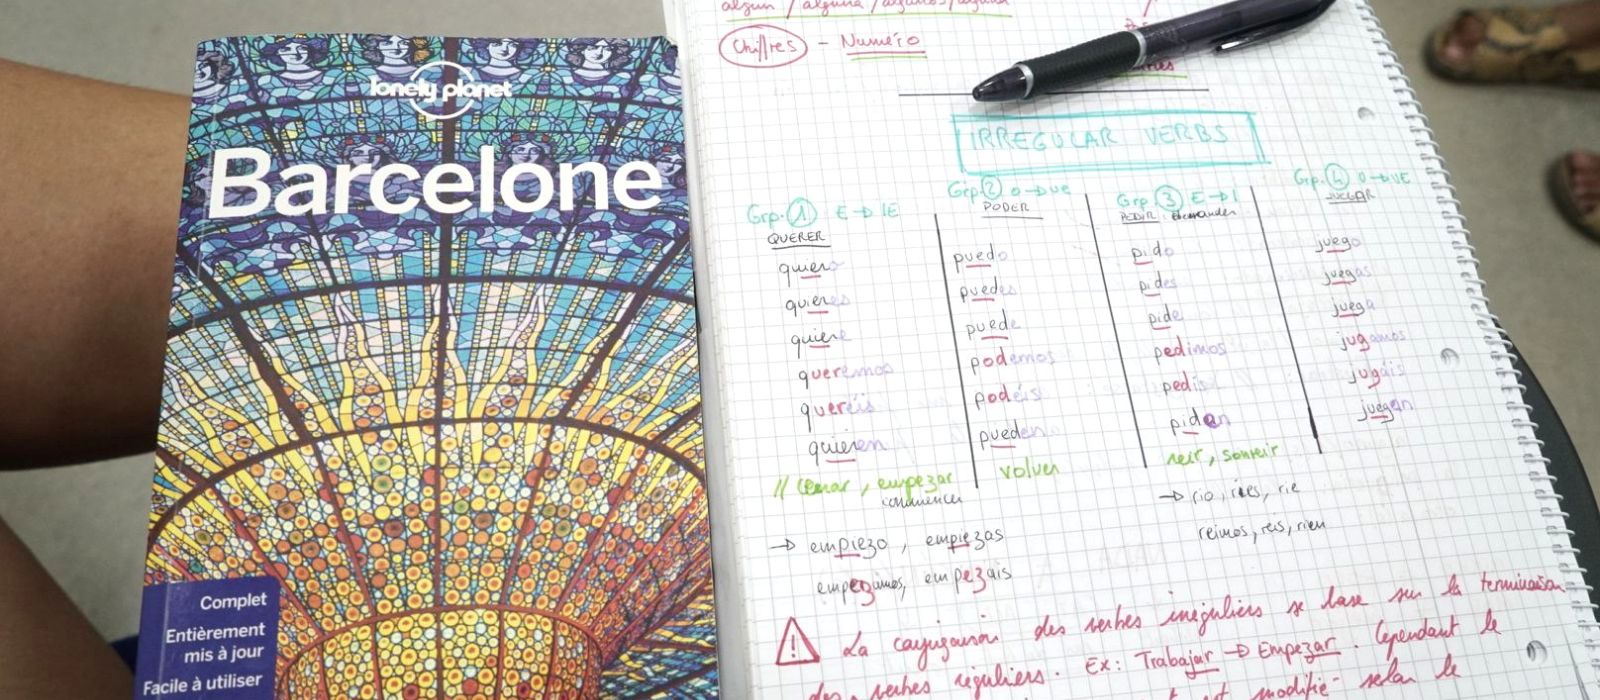 lonely planet
Barcelone
Complet
Entièrement
mis à jour
Facile à utiliser
algun / alguna / algunos /
Chiffres - Numéro
IRREGULAR VERBS
Grp. 1 E → IE
QUERER
quiero
quieres
quiere
queremos
queréis
quieren
// cenar, empezar
commencer
→ empiezo, empiezas
empezamos, empezais
Grp. 2 O → ue
PODER
puedo
puedes
puede
podemos
podéis
pueden
volver
Grp. 3 E → I
PEDIR: demander
pido
pides
pide
pedimos
pedis
piden
reir, sonreir
→ rio, ries, rie
reimos, reis, rien
Grp. 4 O → UE
JUGAR
juego
juegas
juega
jugamos
jugáis
juegan
La conjugaison des verbes irréguliers se base sur la terminaison
des verbes réguliers. Ex: Trabajar → Empezar. Cependant le
est modifié selon le